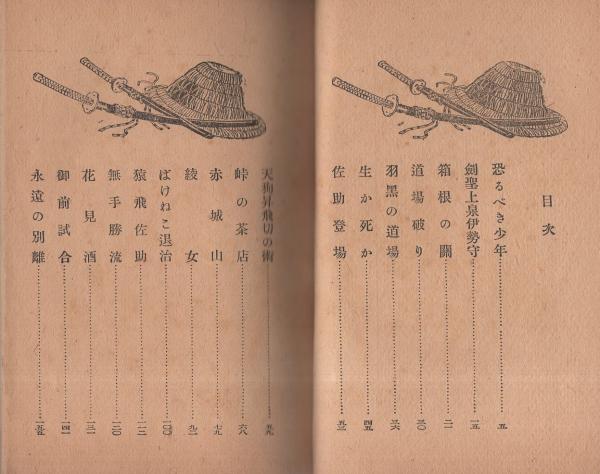 目次
恐るべき少年 五
劍聖上泉伊勢守 一五
箱根の關 二一
道場破り 三〇
羽黑の道場 三六
生か死か 四五
佐助登場 五三
天狗昇飛切の術 五九
峠の茶店 六八
赤城山 七九
綾女 九一
ばけねこ退治 一〇〇
猿飛佐助 一一三
無手勝流 一二〇
花見酒 一三一
御前試合 一四一
永遠の別離 一五五